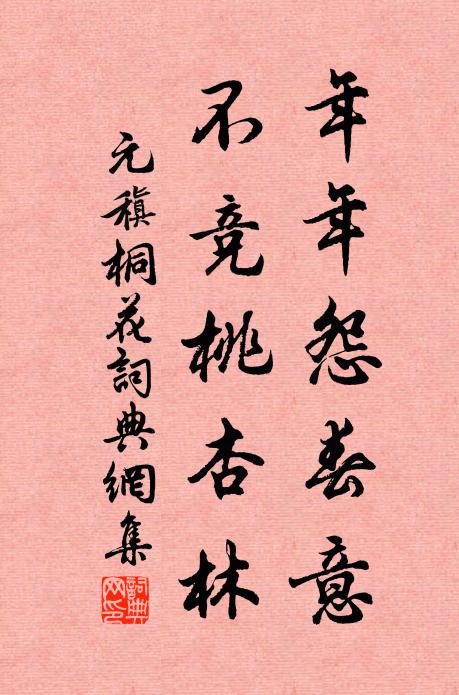 年年怨春意
不竞桃杏林
元稹桐花詞典網集
詞典網印